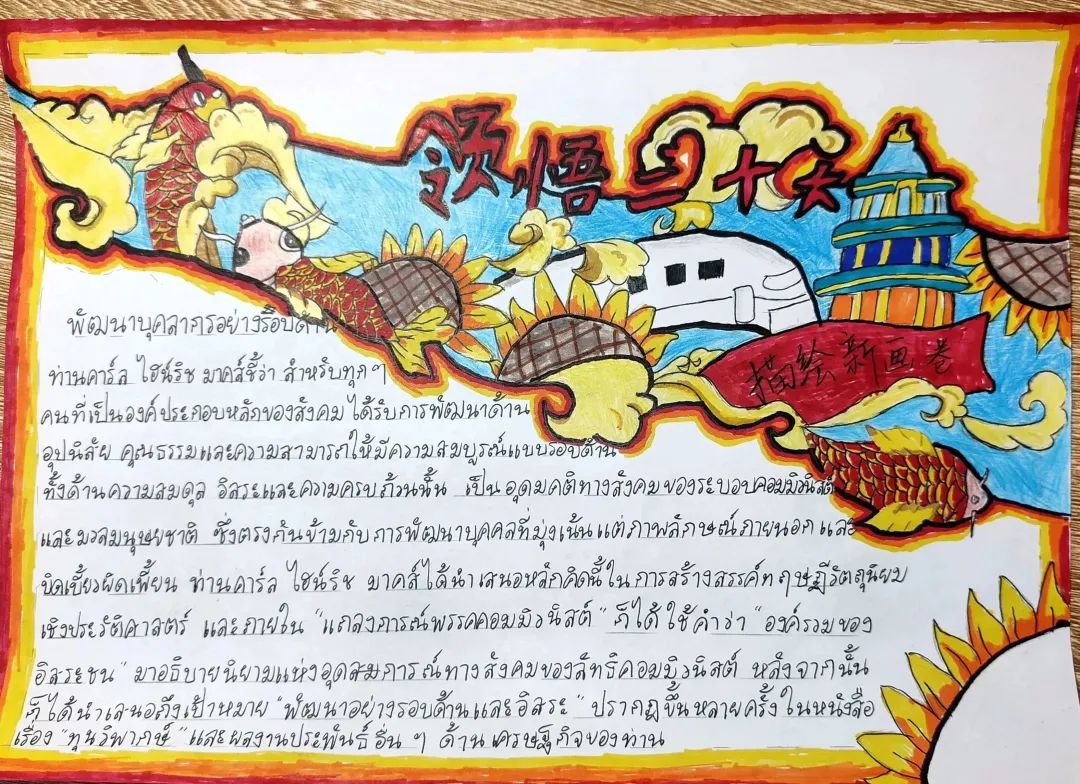 领悟二十大
描绘新画卷
พัฒนาบุคลากรอย่างรอบด้าน
ท่านคาร์ล ไฮน์ริช มาคส์ชี้ว่า สำหรับทุกๆ
คนที่เป็นองค์ประกอบหลักของสังคม ได้รับการพัฒนาด้าน
อุปนิสัย คุณธรรมและความสามารถให้มีความสมบูรณ์แบบรอบด้าน
ทั้งด้านความสมดุล อิสระและความครบถ้วนนั้น เป็นอุดมคติทางสังคมของระบอบคอมมิวนิสต์
และมวลมนุษยชาติ ซึ่งตรงกันข้ามกับการพัฒนาบุคคลที่มุ่งเน้นแต่ภาพลักษณ์ภายนอกและ
บิดเบี้ยวผิดเพี้ยน ท่านคาร์ล ไฮน์ริช มาคส์ได้นำเสนอหลักคิดนี้ในการสร้างสรรค์ทฤษฎีวัตถุนิยม
เชิงประวัติศาสตร์ และภายใน "แถลงการณ์พรรคคอมมิวนิสต์" ก็ได้ใช้คำว่า "องค์รวมของ
อิสระชน" มาอธิบายนิยามแห่งอุดสมการณ์ทางสังคมของลัทธิคอมมิวนิสต์ หลังจากนั้น
ก็ได้นำเสนอถึงเป้าหมาย "พัฒนาอย่างรอบด้านและอิสระ" ปรากฏขึ้นหลายครั้งในหนังสือ
เรื่อง "ทุนวิพากษ์" และผลงานประพันธ์อื่น ๆ ด้านเศรษฐกิจของท่าน